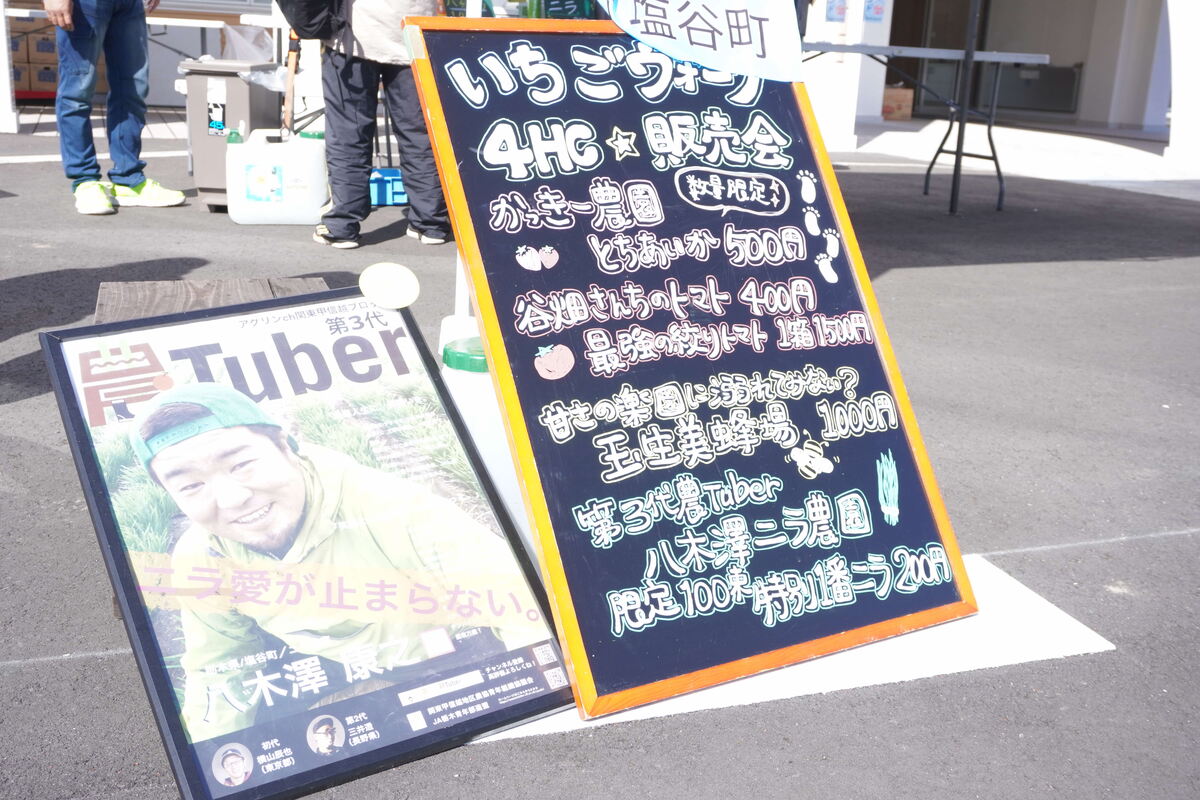 塩谷町
いちごウォーク
4HC☆販売会
かっきー農園
数量限定
とちあいか 500円
谷畑さんちのトマト 400円
最強の絞りトマト 1箱1500円
甘さの楽園に溺れてみない?
玉生美蜂場 1000円
第3代農Tuber
八木澤ニラ農園
限定100束 特別1番ニラ200円
アグリンch関東甲信越ブロック
第3代
農Tuber
ニラ愛が止まらない。
栃木県/塩谷町/
八木澤 康之
チャンネル登録
高評価よろしくね!
関東甲信越地区農協青年組織協議会
JA栃木青年部連盟
初代
横山辰也
(東京都)
第2代
三井透
(長野県)
45